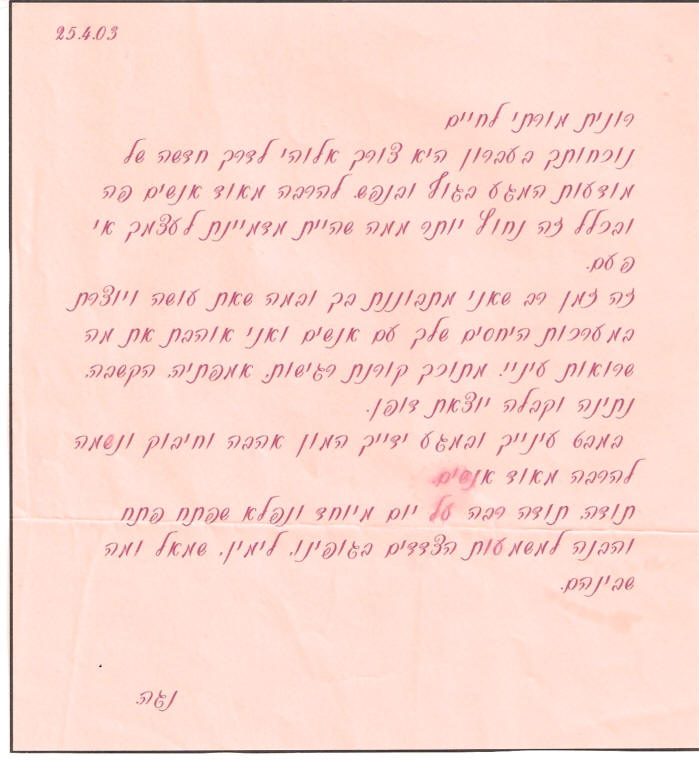 25.4.03
רונית מורתי לחיים
נוכחותך בעברון היא צורך אלוהי לדרך חדשה של
מודעות המגע בגוף ובנפש. להרבה מאוד אנשים פה
ובכלל זה נחוץ יותר ממה שהיית מדמיינת לעצמך אי
פעם.
זה זמן רב שאני מתבוננת בך ובמה שאת עושה ויוצרת
במערכות היחסים שלך עם אנשים ואני אוהבת את מה
שרואות עיניי. מתוכך קורנת רגישות, אמפתיה, הקשבה,
נתינה וקבלה יוצאת דופן.
במבט עינייך ובמגע ידייך המון אהבה וחיבוק ונשמה
להרבה מאוד אנשים.
תודה, תודה רבה על יום מיוחד ונפלא שפתח פתח
והבנה למשמעות הצדדים בגופינו, לימין, שמאל ומה
שביניהם.
נגה.